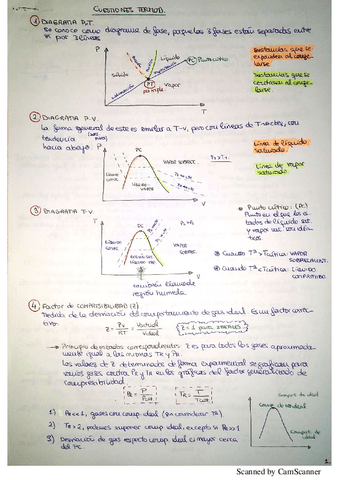 CUESTIONES TERMOD.
① DIAGRAMA P.T.
Se conoce como diagrama de fase, porque las 3 fases están separadas entre
sí por 3 líneas
P
Líquido
PC Punto crítico
Sólido
Vapor
PT
T
Sustancias que se
expanden al conge
larse
Sustancias que se
contraen al conge
larse
② DIAGRAMA P.V.
La forma general de este es similar a T-v, pero con líneas de T=ctes, con
tendencia
hacia abajo
P
PC
VAPOR SOBREC.
V
Línea de líquido
saturado.
Línea de vapor
saturado
③ DIAGRAMA T-V.
T
PC
VAPOR
SOBREC.
V
región húmeda
Punto crítico: (Pc)
Punto en el que los e
stados de líquido sat.
y vapor sat. son idén
ticos.
Cuando Tª > Tcrítica: VAPOR
SOBRECALENT.
Cuando Tª < Tcrítica: LÍQUIDO
COMPRIMIDO
④ Factor de COMPRESIBILIDAD (Z)
Medida de la desviación del comportamiento de gas ideal es un factor correc
tor.
Z = Pv / RT = Vactual / Videal
Z = 1 para IDEALES
Principio de estados correspondientes: Z es para todos los gases aproximada
mente igual a las mismas TR y PR.
Los valores de Z determinados de forma experimental se grafican para
varios gases contra PR y TR en las gráficas del factor generalizado de
compresibilidad.
PR = P / Pcrit
TR = T / Tcrit
1) PR << 1, gases con comp. ideal (sin considerar TR)
2) TR > 2, podemos suponer comp. ideal, excepto si PR >> 1
3) Desviación de gas respecto comp. ideal es mayor cerca
del PC.
Comport. de ideal
Comport. de ideal
1.
Scanned by CamScanner